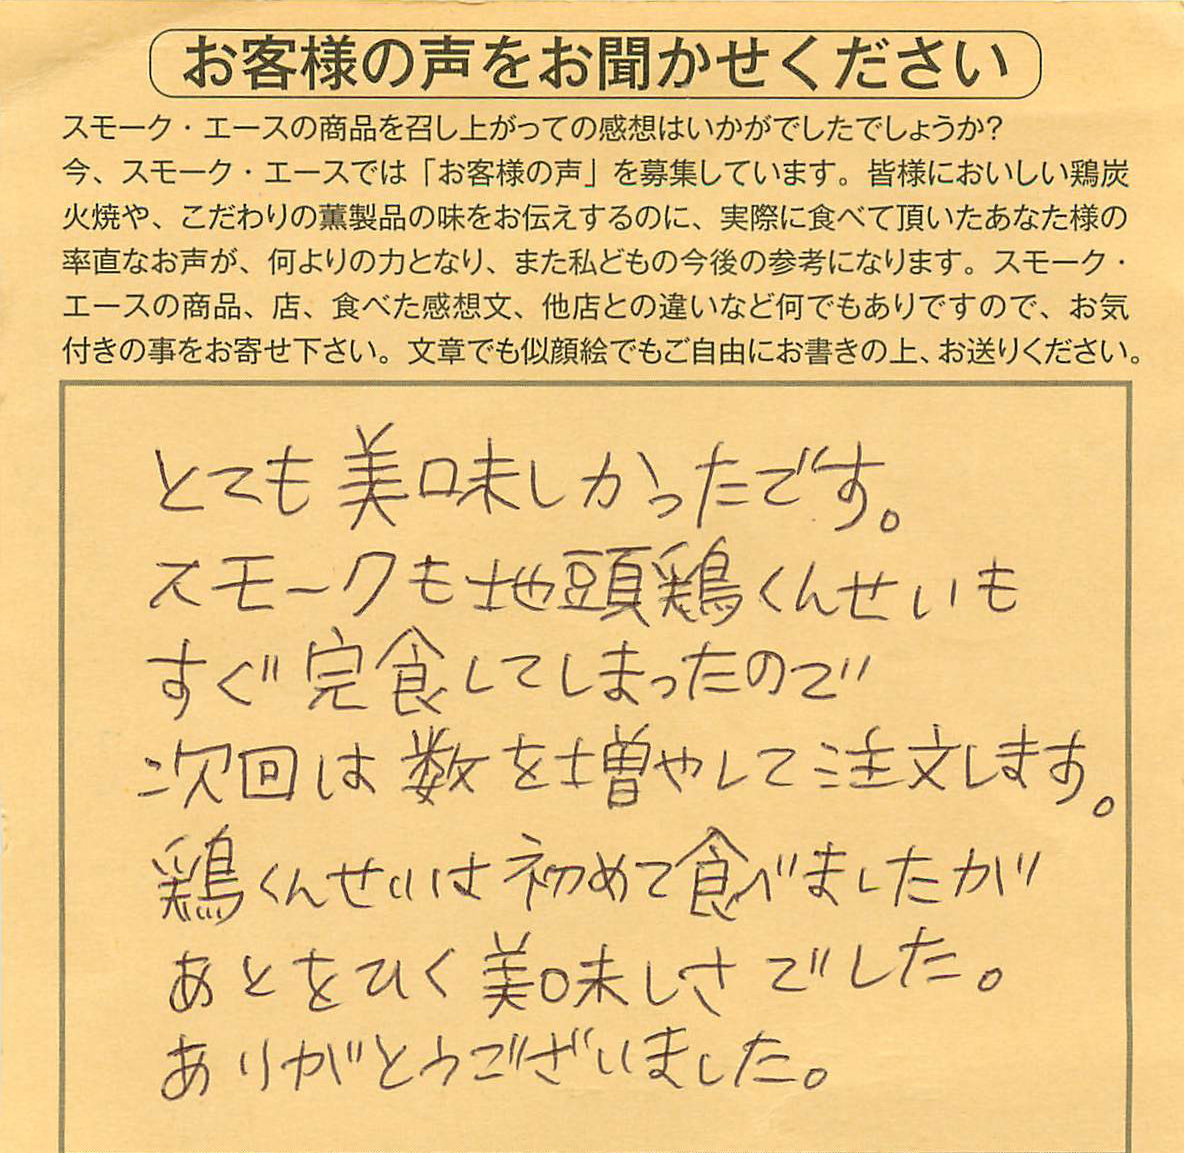 お客様の声をお聞かせください
スモーク・エースの商品を召し上がっての感想はいかがでしたでしょうか？
今、スモーク・エースでは「お客様の声」を募集しています。皆様においしい鶏炭
火焼や、こだわりの薫製品の味をお伝えするのに、実際に食べて頂いたあなた様の
率直なお声が、何よりの力となり、また私どもの今後の参考になります。スモーク・
エースの商品、店、食べた感想文、他店との違いなど何でもありですので、お気
付きの事をお寄せ下さい。文章でも似顔絵でもご自由にお書きの上、お送りください。
とても美味しかったです。
スモークも地頭鶏くんせいも
すぐ完食してしまったので
次回は数を増やして注文します。
鶏くんせいは初めて食べましたが
あとをひく美味しさでした。
ありがとうございました。